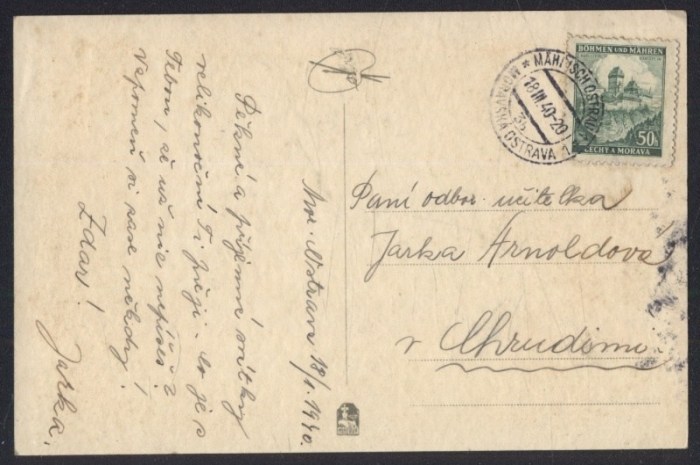 Mor. Ostrava 18/3. 1940.
Pěkné a příjemné svátky
velikonoční Ti přeji. Co je s
Tebou, že už nic nepíšeš?
Vzpomeň si zase někdy!
Zdar!
Jarka.
BÖHMEN UND MÄHREN
50h
ČECHY A MORAVA
MÄHRISCH OSTRAU 1
MORAVSKÁ OSTRAVA 1
18.III.40-20
Paní odbor. učitelka
Jarka Arnoldová
v Chrudimi